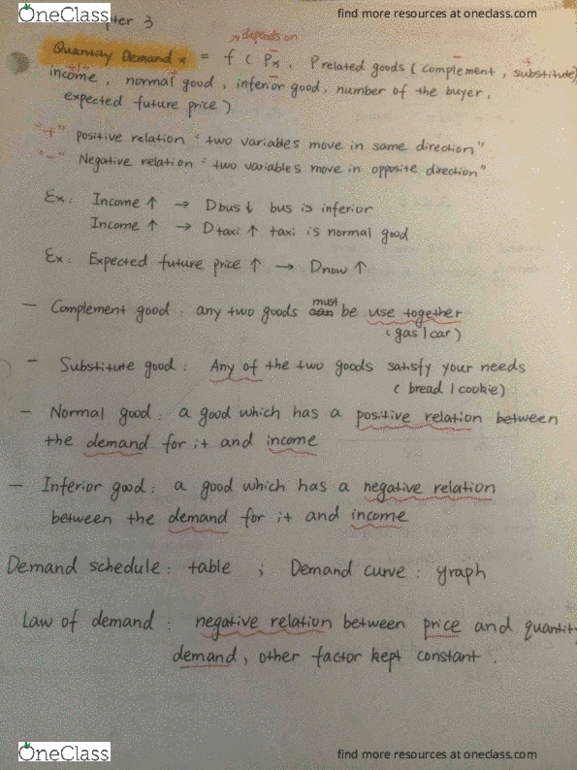 OneClass
find more resources at oneclass.com
pter 3
depends on
Quantity Demand x = f ( Px , P related goods ( complement , substitute)
- - +
income , normal good , inferior good , number of the buyer ,
+/- + -
expected future price )
"+" positive relation " two variables move in same direction"
"-" Negative relation " two variables move in opposite direction"
Ex: Income ↑ → Dbus ↓ bus is inferior
Income ↑ → Dtaxi ↑ taxi is normal good
Ex: Expected future price ↑ → Dnow ↑
must
- Complement good : any two goods can be use together
( gas | car )
- Substitute good : Any of the two goods satisfy your needs
( bread | cookie)
- Normal good : a good which has a positive relation between
the demand for it and income
- Inferior good : a good which has a negative relation
between the demand for it and income
Demand schedule : table ; Demand curve : graph
Law of demand : negative relation between price and quantit
demand , other factor kept constant .
OneClass
find more resources at oneclass.com